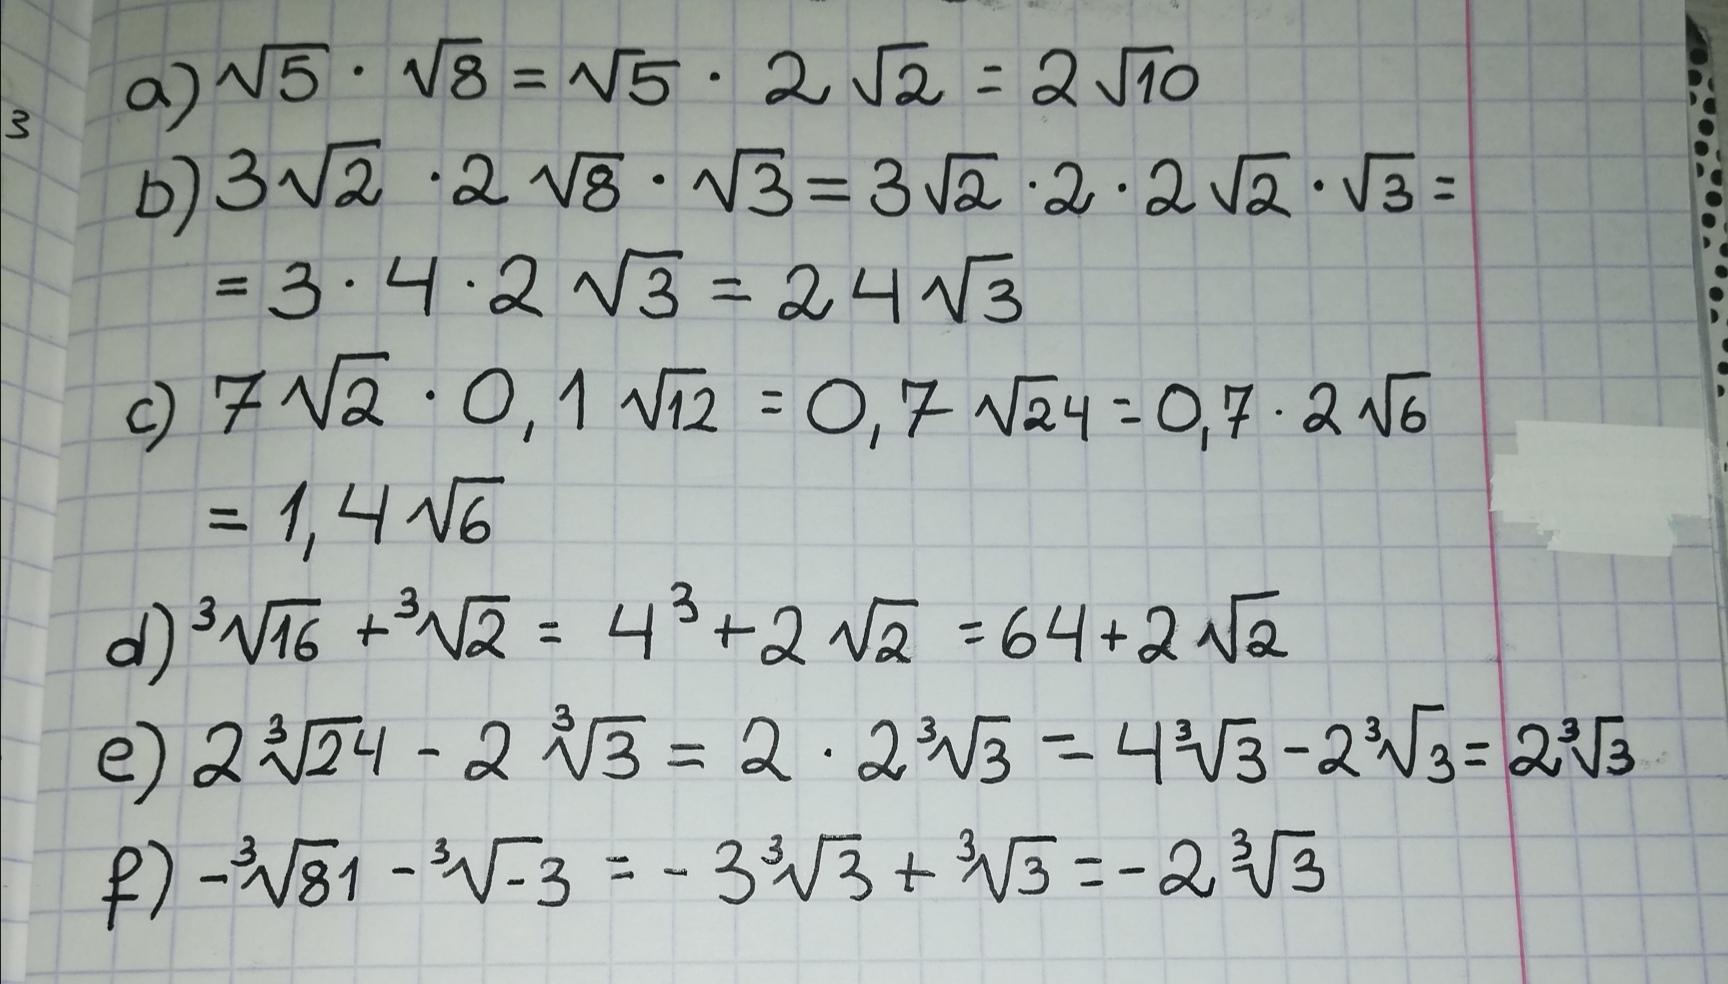 3
a) √5 · √8 = √5 · 2 √2 = 2 √10
b) 3√2 · 2 √8 · √3 = 3√2 · 2 · 2 √2 · √3 =
= 3 · 4 · 2 √3 = 24√3
c) 7√2 · 0,1 √12 = 0,7 √24 = 0,7 · 2 √6
= 1,4√6
d) ³√16 + ³√2 = 4³ + 2 √2 = 64 + 2 √2
e) 2 ³√24 - 2 ³√3 = 2 · 2 ³√3 = 4 ³√3 - 2 ³√3 = 2 ³√3
f) - ³√81 - ³√-3 = - 3 ³√3 + ³√3 = - 2 ³√3